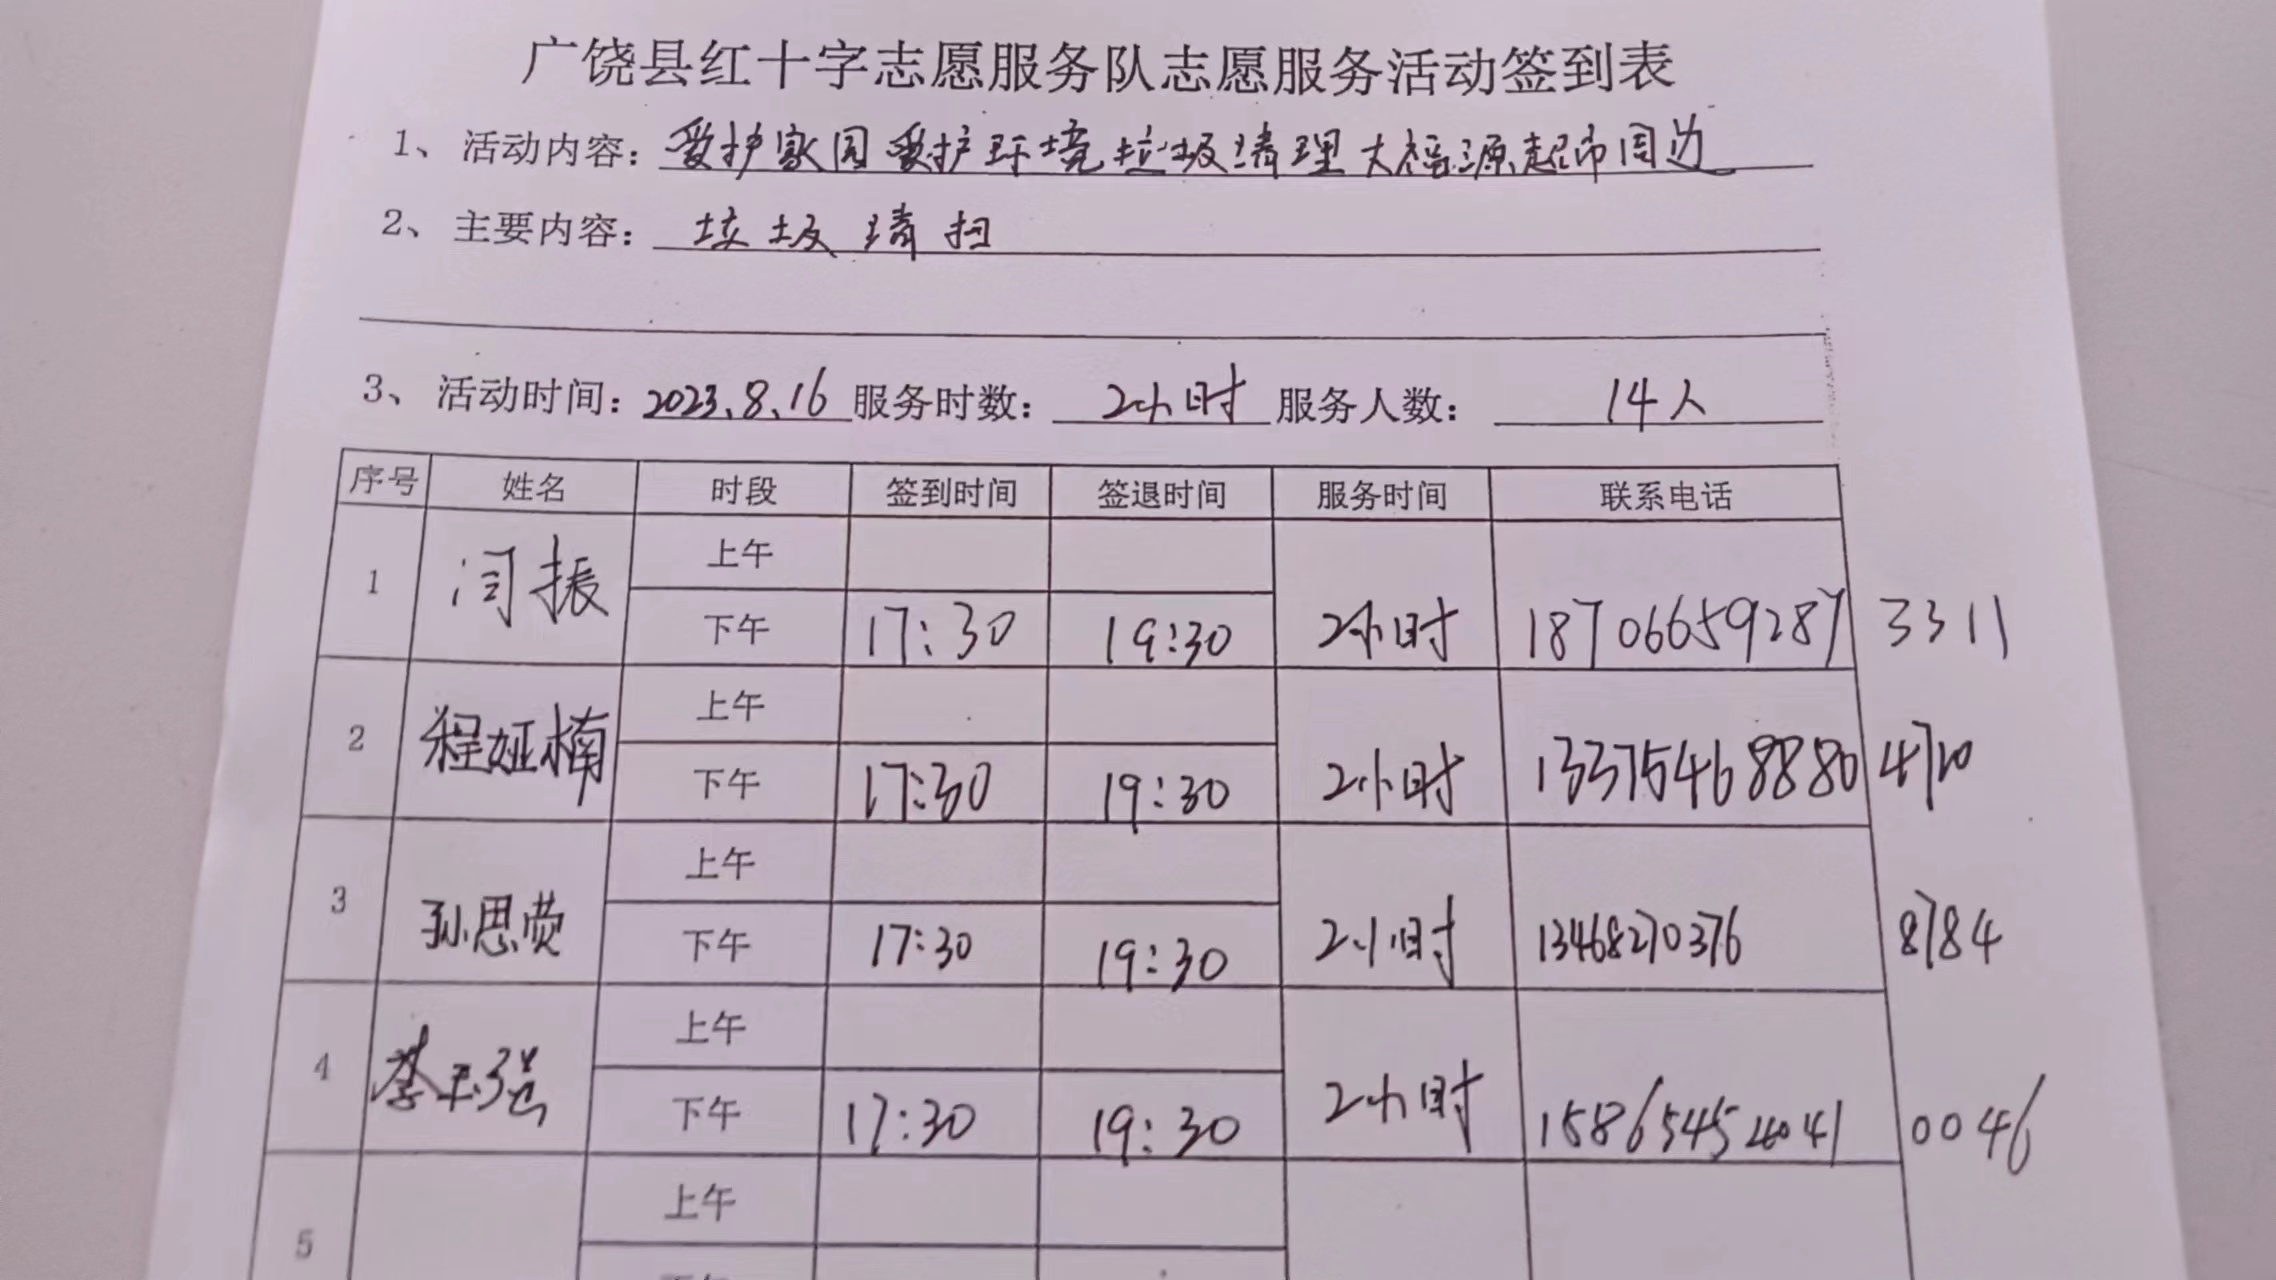 广饶县红十字志愿服务队志愿服务活动签到表
1、活动内容：爱护家园爱护环境垃圾清理大福源超市周边
2、主要内容：垃圾清扫
3、活动时间：2023.8.16 服务时数：2小时 服务人数：14人
序号 姓名 时段 签到时间 签退时间 服务时间 联系电话
上午
1 闫振 2小时 18706659287 3311
下午 17:30 19:30
上午
2 程娅楠 2小时 13375468880 4720
下午 17:30 19:30
上午
3 孙思 2小时 13468270376 8784
下午 17:30 19:30
上午
4 李玉强 2小时 15865454041 0046
下午 17:30 19:30
上午
5
下午